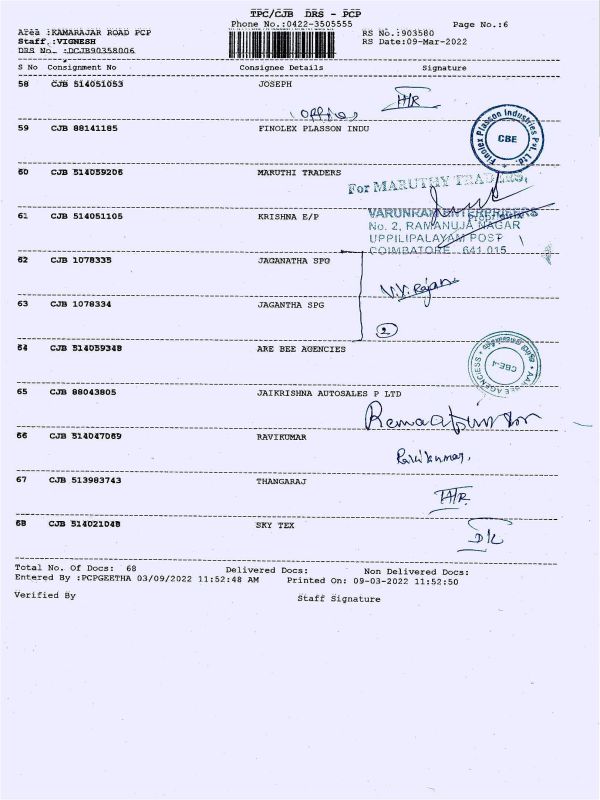 TPC/CJB DRS - PCP
Phone No.:0422-3505555 Page No.:6
Area :KAMARAJAR ROAD PCP RS No.:903580
Staff :VIGNESH RS Date:09-Mar-2022
DRS No. :DCJB90358006
S No Consignment No Consignee Details Signature
58 CJB 514051053 JOSEPH
(Office)
59 CJB 88141185 FINOLEX PLASSON INDU
Finolex Plasson Industries Pvt. Ltd. CBE
60 CJB 514059206 MARUTHI TRADERS
For MARUTHY TRADERS,
Proprietrix
61 CJB 514051105 KRISHNA E/P
VARUNRAM ENTERPRISERS
No. 2, RAMANUJA NAGAR
UPPILIPALAYAM POST
COIMBATORE - 641 015
62 CJB 1078335 JAGANATHA SPG
V.V. Rajan
63 CJB 1078334 JAGANTHA SPG
2
64 CJB 514059348 ARE BEE AGENCIES
CBE-4
65 CJB 88043805 JAIKRISHNA AUTOSALES P LTD
66 CJB 514047069 RAVIKUMAR
Ravikumar.
67 CJB 513983743 THANGARAJ
68 CJB 514021048 SKY TEX
Total No. Of Docs: 68 Delivered Docs: Non Delivered Docs:
Entered By :PCPGEETHA 03/09/2022 11:52:48 AM Printed On: 09-03-2022 11:52:50
Verified By Staff Signature